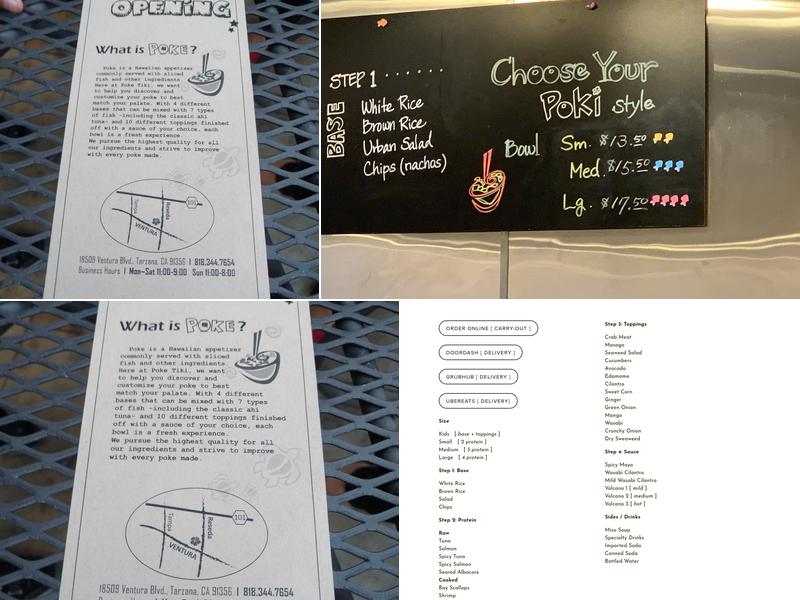 OPENING
What is POKE?
Poke is a Hawaiian appetizer
commonly served with sliced
fish and other ingredients.
Here at Poke Tiki, we want
to help you discover and
customize your poke to best
match your palate. With 4 different
bases that can be mixed with 7 types
of fish -including the classic ahi
tuna- and 10 different toppings finished
off with a sauce of your choice, each
bowl is a fresh experience.
We pursue the highest quality for all
our ingredients and strive to improve
with every poke made.
Tampa
Reseda
101
VENTURA
18509 Ventura Blvd., Tarzana, CA 91356 | 818.344.7654
Business Hours | Mon-Sat 11:00-9:00 Sun 11:00-8:00
STEP 1 ......
BASE
White Rice
Brown Rice
Urban Salad
Chips (nachos)
Choose Your
Poki style
Bowl
Sm. $13.50
Med. $15.50
Lg. $17.50
What is POKE?
Poke is a Hawaiian appetizer
commonly served with sliced
fish and other ingredients.
Here at Poke Tiki, we want
to help you discover and
customize your poke to best
match your palate. With 4 different
bases that can be mixed with 7 types
of fish -including the classic ahi
tuna- and 10 different toppings finished
off with a sauce of your choice, each
bowl is a fresh experience.
We pursue the highest quality for all
our ingredients and strive to improve
with every poke made.
Tampa
Reseda
101
VENTURA
18509 Ventura Blvd., Tarzana, CA 91356 | 818.344.7654
ORDER ONLINE [ CARRY-OUT ]
DOORDASH [ DELIVERY ]
GRUBHUB [ DELIVERY ]
UBEREATS [ DELIVERY]
Size
Kids [ base + toppings ]
Small [ 2 protein ]
Medium [ 3 protein ]
Large [ 4 protein ]
Step 1: Base
White Rice
Brown Rice
Salad
Chips
Step 2: Protein
Raw
Tuna
Salmon
Spicy Tuna
Spicy Salmon
Seared Albacore
Cooked
Bay Scallops
Shrimp
Step 3: Toppings
Crab Meat
Masago
Seaweed Salad
Cucumbers
Avocado
Edamame
Cilantro
Sweet Corn
Ginger
Green Onion
Mango
Wasabi
Crunchy Onion
Dry Seaweed
Step 4: Sauce
Spicy Mayo
Wasabi Cilantro
Mild Wasabi Cilantro
Volcano 1 [ mild ]
Volcano 2 [ medium ]
Volcano 3 [ hot ]
Sides / Drinks
Miso Soup
Specialty Drinks
Imported Soda
Canned Soda
Bottled Water